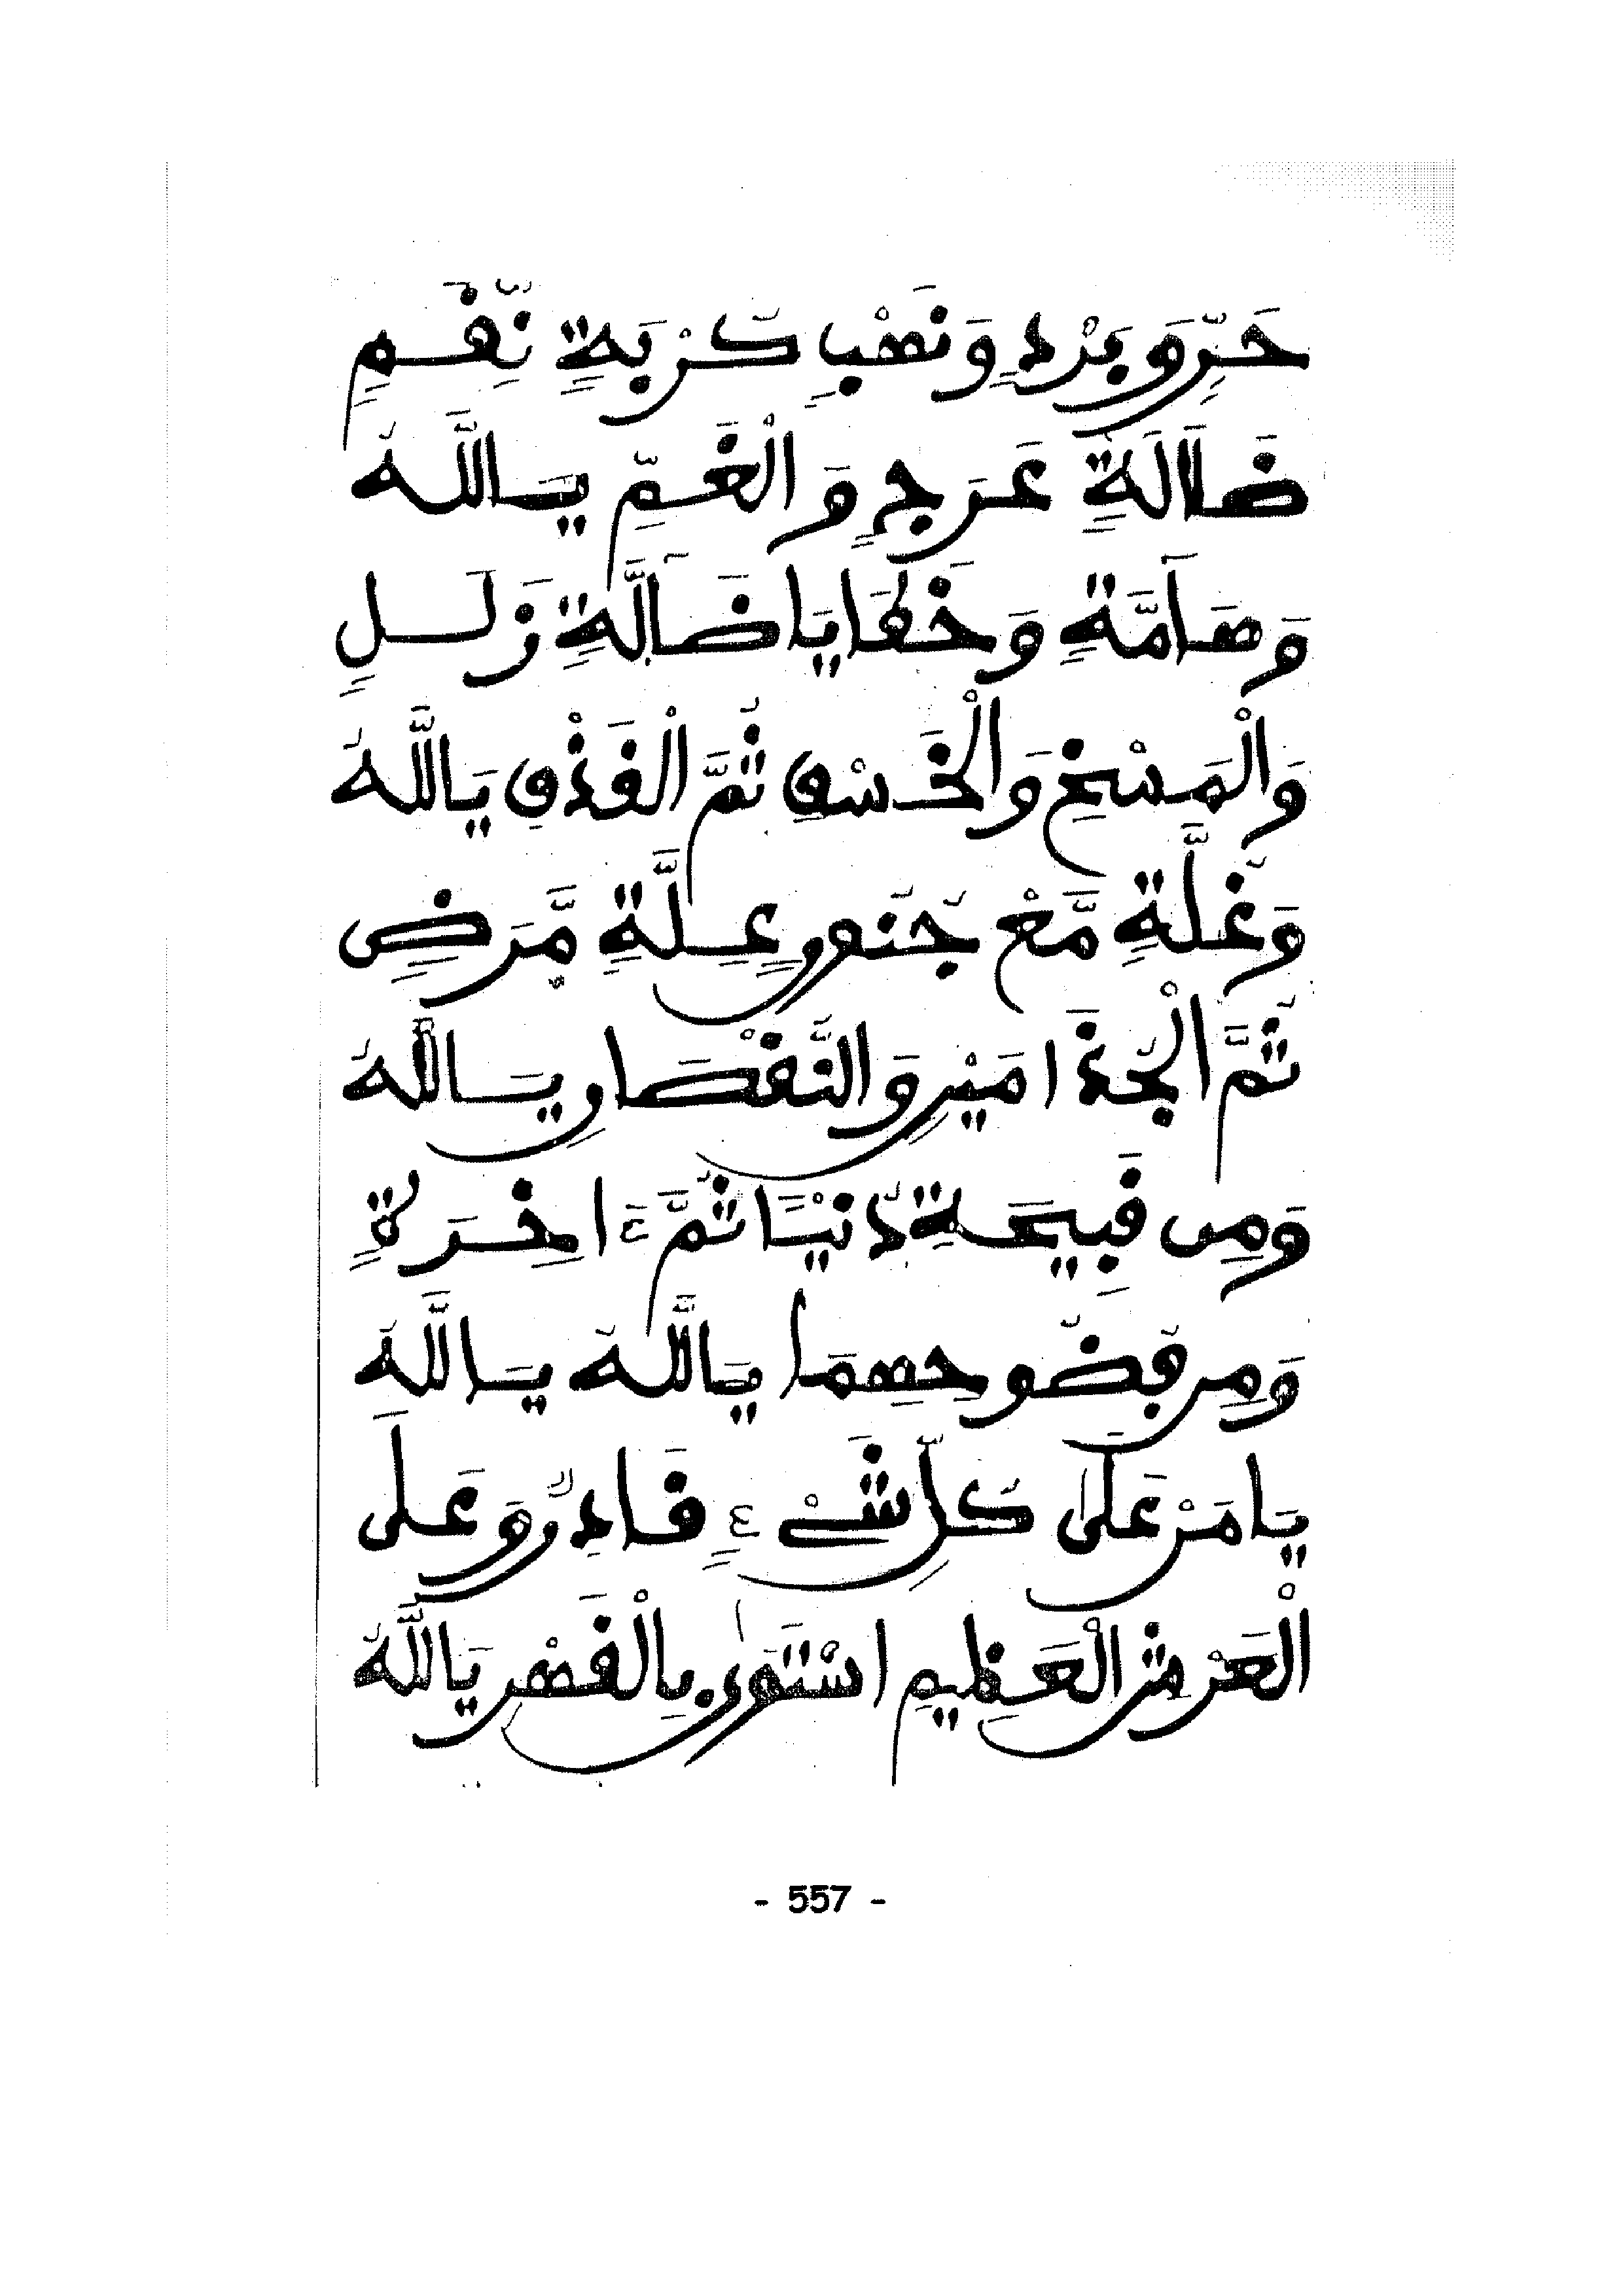 حَرٍّ وَبَرْدٍ وَنَهْبٍ كُرْبَةٍ نِّقَمٍ
ضَلَالَةٍ عَرَجٍ وَالْغَمِّ يَا اللَّهُ
وَهَامَّةٍ وَخَطَايَا ضَالَّةٍ زَلَلٍ
وَالْمَسْخِ وَالْخَسْفِ ثُمَّ الْقَذْفِ يَا اللَّهُ
وَغُلَّةٍ مَّعْ جُنُونٍ عِلَّةٍ مَّرَضٍ
ثُمَّ الْجُذَامَيْنِ وَالنُّقْصَانِ يَا اللَّهُ
وَمِن فَضِيحَةِ دُنْيَا ثُمَّ ءَاخِرَةٍ
وَمِن فُضُوحِهِمَا يَا اللَّهُ يَا اللَّهُ
يَا مَنْ عَلَىٰ كُلِّ شَيْءٍ قَادِرٌ وَعَلَى
الْعَرْشِ الْعَظِيمِ اسْتَوَىٰ بِالْقَهْرِ يَا اللَّهُ
- 557 -